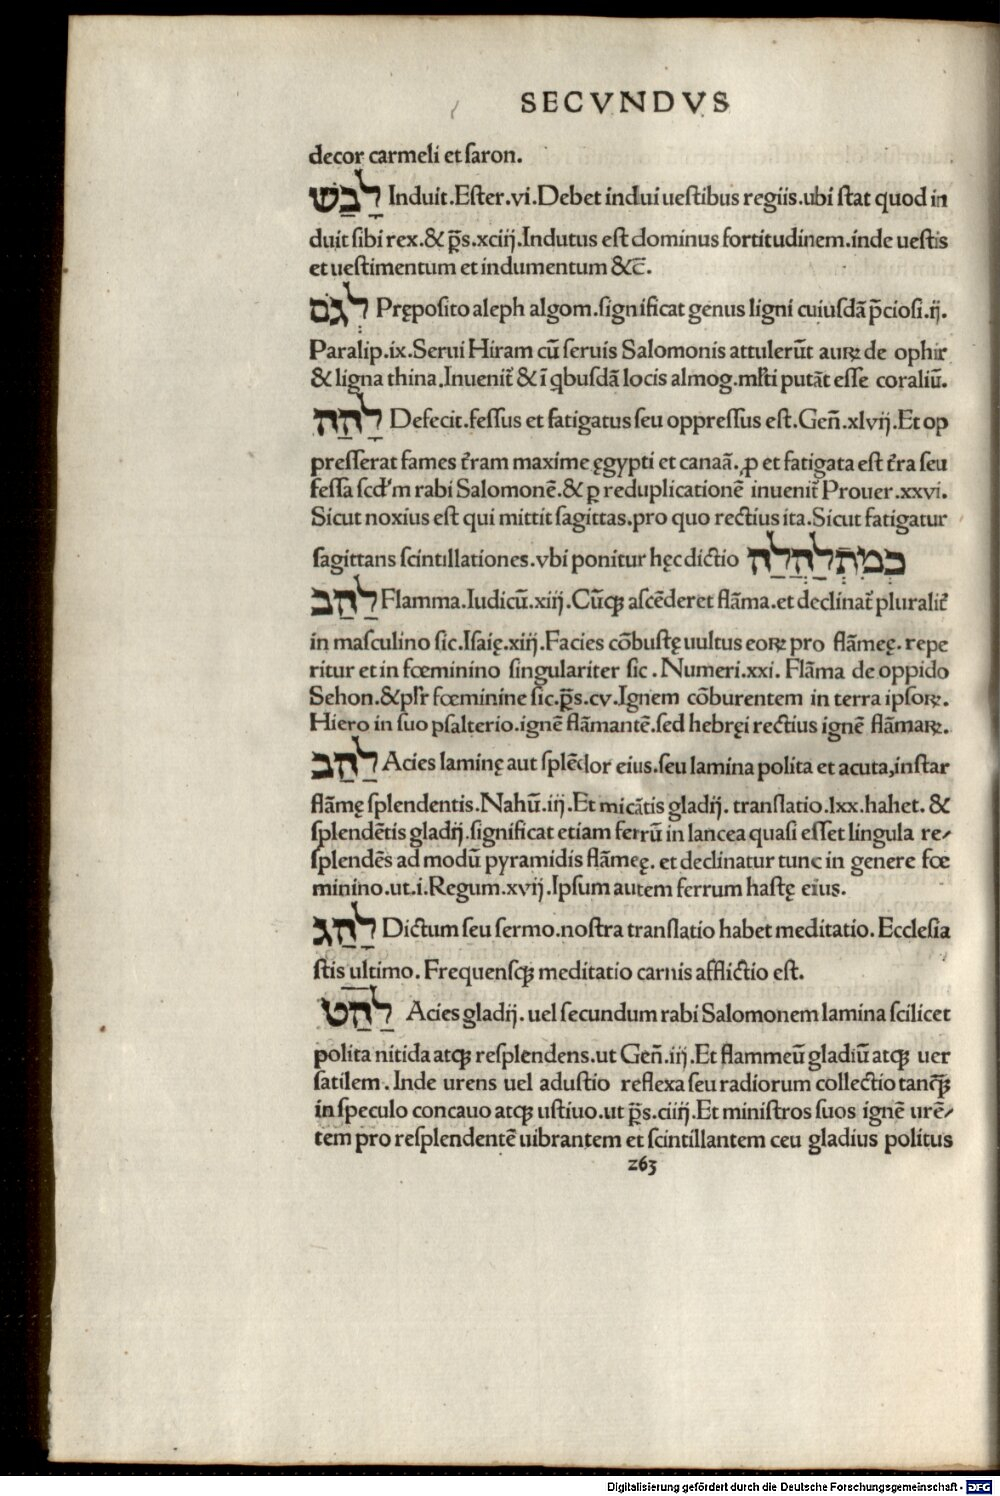 SECVNDVS
decor carmeli et saron.
לָבַשׁ Induit. Ester. vi. Debet indui uestibus regiis. ubi stat quod in
duit sibi rex. & p̄s. xciij. Indutus est dominus fortitudinem. inde uestis
et uestimentum et indumentum &c̄.
לְגֹם Pręposito aleph algom. significat genus ligni cuiusdā p̄ciosi. ij.
Paralip. ix. Serui Hiram cū seruis Salomonis attulerūt auꝝ de ophir
& ligna thina. Inueniť & ī qbusdā locis almog. mľti putāt esse coraliū.
לָהַהּ Defecit. fessus et fatigatus seu oppressus est. Geñ. xlvij. Et op
presserat fames ťram maxime ęgypti et canaā. ꝓ et fatigata est ťra seu
fessa scďm rabi Salomonē. & ꝑ reduplicationē inueniť Prouer. xxvi.
Sicut noxius est qui mittit sagittas. pro quo rectius ita. Sicut fatigatur
sagittans scintillationes. vbi ponitur hęc dictio כְּמִתְלַהֲלֵהַּ
לַהַב Flamma. Iudicū. xiij. Cūqꝫ ascēderet flāma. et declinať pluraliť
in masculino sic. Isaię. xiij. Facies cōbustę uultus eoꝝ pro flāmeę. repe
ritur et in fœminino singulariter sic. Numeri. xxi. Flāma de oppido
Sehon. & pľr fœminine sic. p̄s. cv. Ignem cōburentem in terra ipsoꝝ.
Hiero in suo psalterio. ignē flāmantē. sed hebręi rectius ignē flāmaꝝ.
לַהַב Acies laminę aut splēdor eius. seu lamina polita et acuta, instar
flāmę splendentis. Nahū. iij. Et micātis gladij. translatio. lxx. hahet. &
splendētis gladij. significat etiam ferrū in lancea quasi esset lingula re⸗
splendēs ad modū pyramidis flāmeę. et declinatur tunc in genere fœ
minino. ut. i. Regum. xvij. Ipsum autem ferrum hastę eius.
לַהַג Dictum seu sermo. nostra translatio habet meditatio. Ecclesia
stis ultimo. Frequensqꝫ meditatio carnis afflictio est.
לַהַט Acies gladij. uel secundum rabi Salomonem lamina scilicet
polita nitida atqꝫ resplendens. ut Geñ. iij. Et flammeū gladiū atqꝫ uer
satilem. Inde urens uel adustio reflexa seu radiorum collectio tanq̄ꝫ
in speculo concauo atqꝫ ustiuo. ut p̄s. ciiij. Et ministros suos ignē urē⸗
tem pro resplendentē uibrantem et scintillantem ceu gladius politus
263
Digitalisierung gefördert durch die Deutsche Forschungsgemeinschaft - DFG